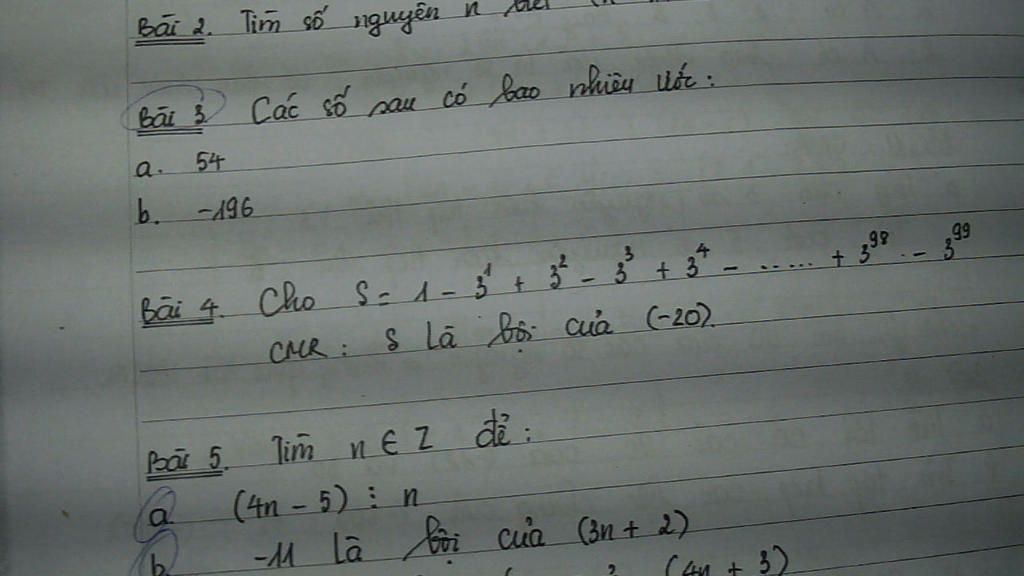 Bài 2. Tìm số nguyên n
Bài 3 Các số sau có bao nhiêu ước:
a. 54
b. -196
Bài 4. Cho S = 1 - 3¹ + 3² - 3³ + 3⁴ - ..... + 3⁹⁸ - 3⁹⁹
CMR: S là bội của (-20).
Bài 5. Tìm n ∈ Z để:
a (4n - 5) ⋮ n
b -11 là bội của (3n + 2)
(4n + 3)